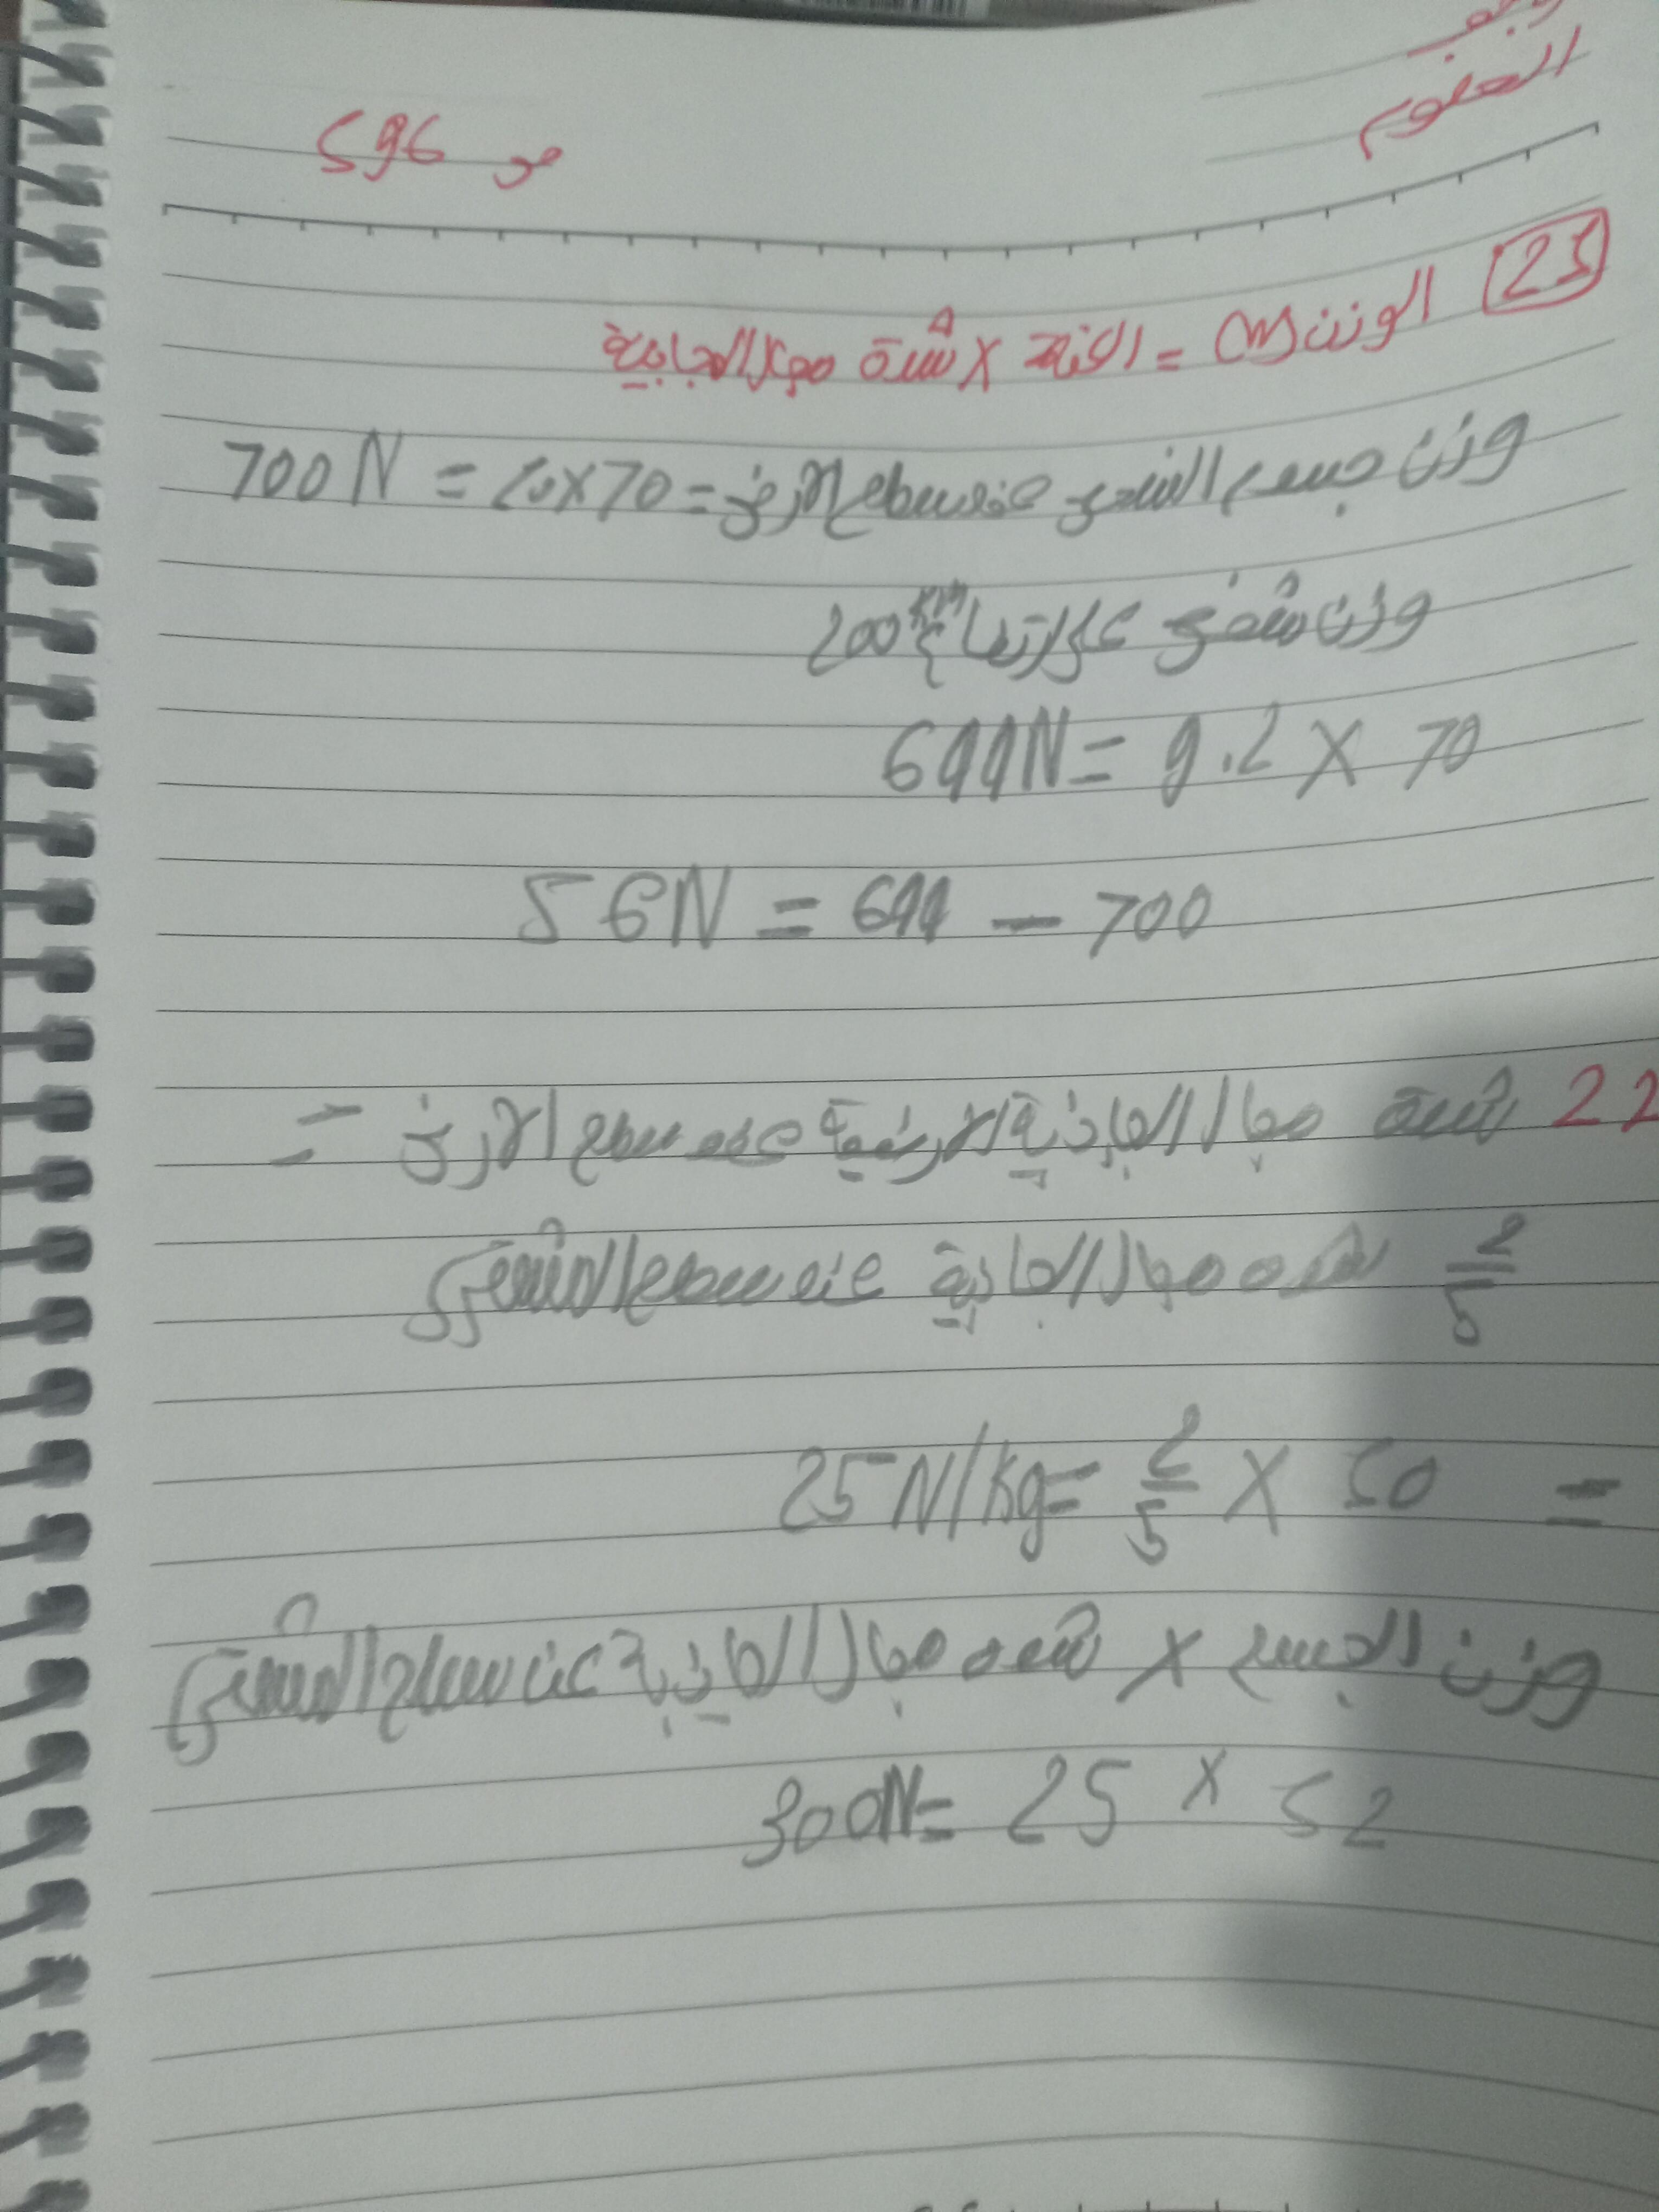 واجب
العلوم
ص 196
21 الوزن (W) = الكتلة × شدة مجال الجاذبية
وزن جسم الشخص عند سطح الأرض = 70×10 = 700N
وزن شخص على ارتفاع 200km
70 × 9.2 = 644N
700 – 644 = 56N
22 شدة مجال الجاذبية الأرضية عند سطح الأرض =
2/5 شدة مجال الجاذبية عند سطح المشتري
= 10 × 2/5 = 25N/kg
وزن الجسم × شدة مجال الجاذبية عند سطح المشتري
12 × 25 = 300N